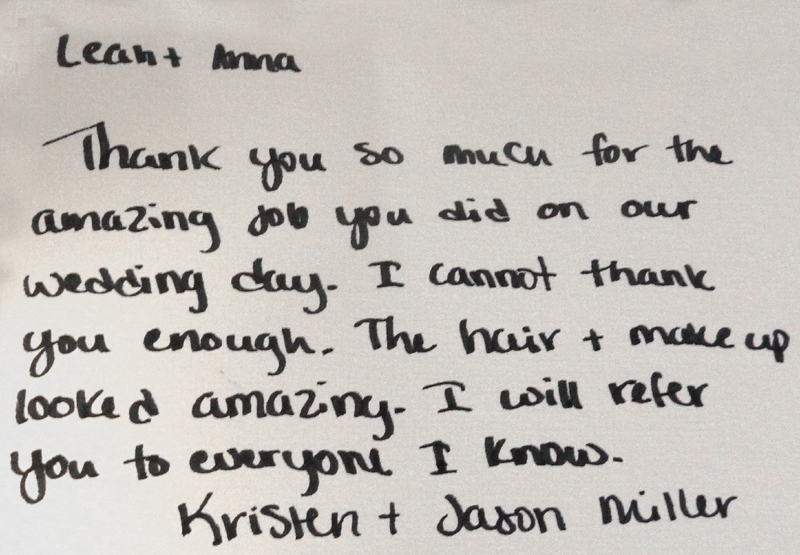 Leah + Anna
Thank you so much for the
amazing job you did on our
wedding day. I cannot thank
you enough. The hair + make up
looked amazing. I will refer
you to everyone I know.
Kristen + Jason Miller